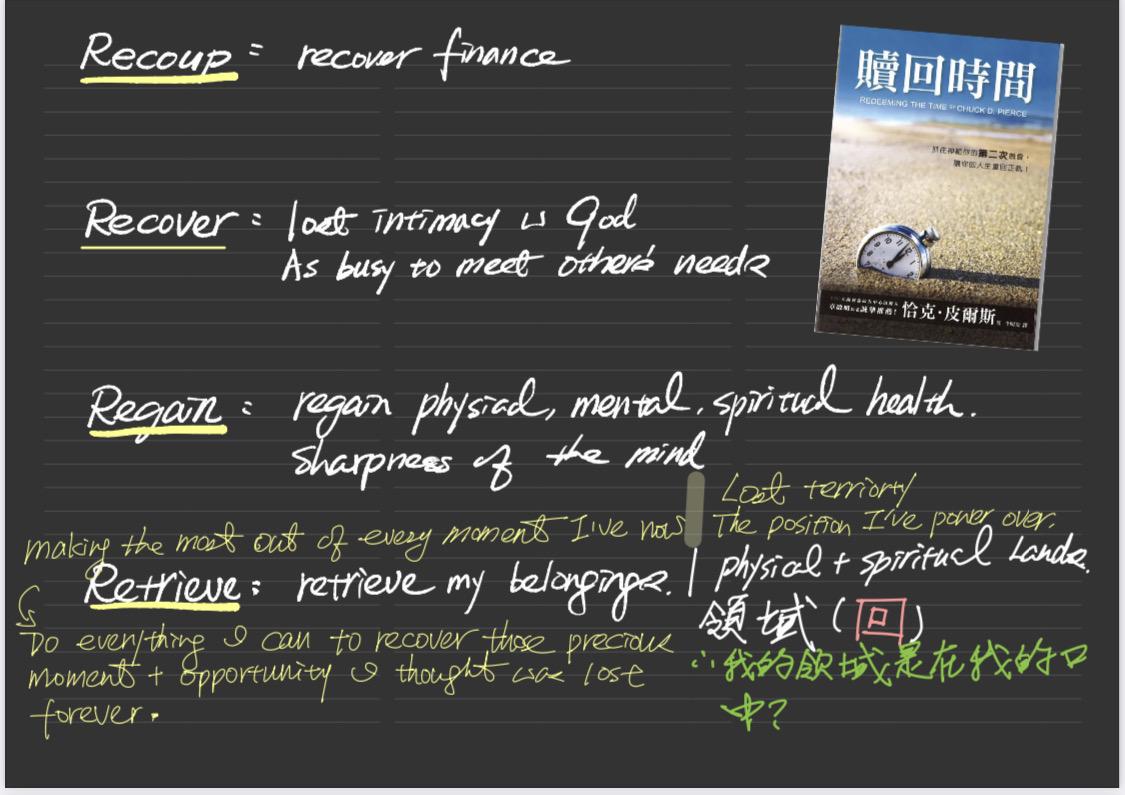 Recoup = recover finance
贖回時間
REDEEMING THE TIME BY CHUCK D. PIERCE
抓住神給你的第二次機會，
讓你的人生重回正軌！
Recover : lost intimacy w God
As busy to meet other's needs
恰克·皮爾斯
Regain : regain physical, mental, spiritual health.
sharpness of the mind
Lost terriorty
making the most out of every moment I've now
The position I've power over.
Retrieve : retrieve my belongings.
physical + spiritual Lands.
領域 (回)
Do everything I can to recover those precious
moment + opportunity I thought was lost
forever.
∴我的領域是在我的口
中?